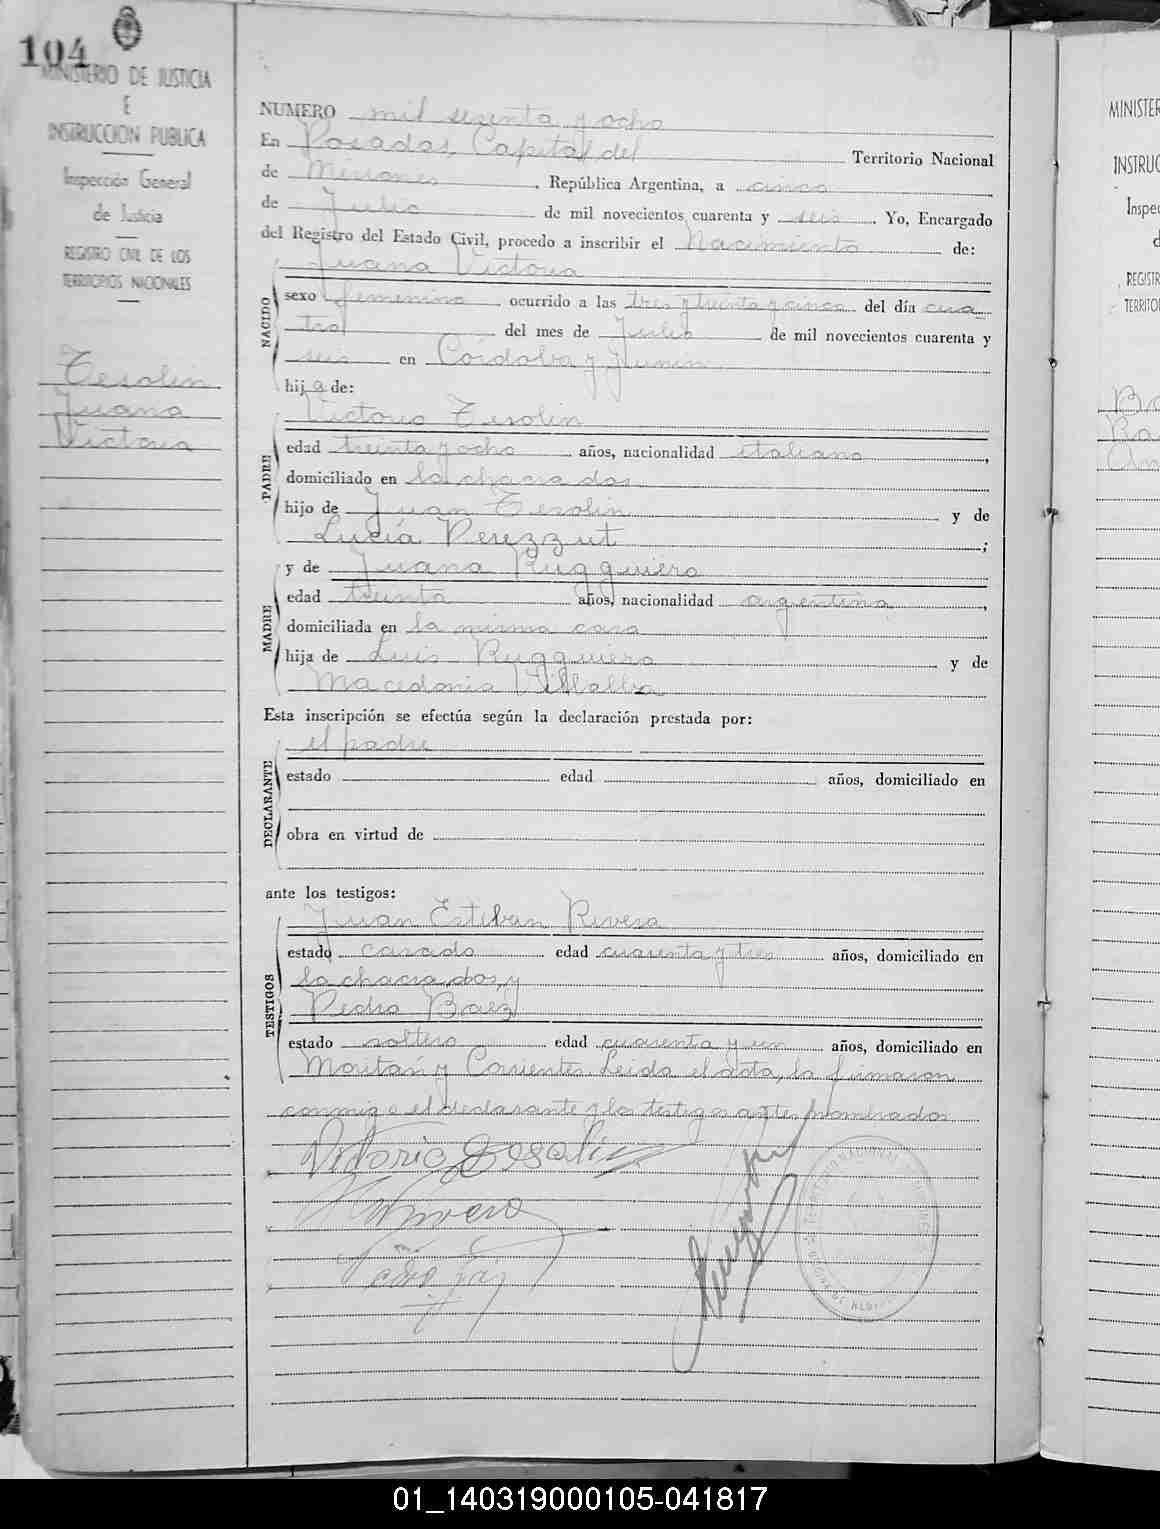 104
MINISTERIO DE JUSTICIA
E
INSTRUCCION PUBLICA
Inspección General
de Justicia
REGISTRO CIVIL DE LOS
TERRITORIOS NACIONALES
Tesolin
Juana
Victoria
NUMERO mil sesenta y ocho
En Posadas, Capital del Territorio Nacional
de Misiones, República Argentina, a cinco
de Julio de mil novecientos cuarenta y seis. Yo, Encargado
del Registro del Estado Civil, procedo a inscribir el Nacimiento de:
Juana Victoria
NACIDO
sexo femenino ocurrido a las tres y treinta y cinco del día cua
tro del mes de Julio de mil novecientos cuarenta y
seis en Córdoba y Junin
hija de:
Victorio Tesolin
PADRE
edad treinta y ocho años, nacionalidad italiana,
domiciliado en la chacra dos
hijo de Juan Tesolin y de
Lucía Perezzut;
y de Juana Rugguiero
MADRE
edad treinta años, nacionalidad argentina,
domiciliada en la misma casa
hija de Luis Rugguiero y de
Macedonia Villalba
Esta inscripción se efectúa según la declaración prestada por:
el padre
DECLARANTE
estado edad años, domiciliado en
obra en virtud de
ante los testigos:
Juan Esteban Rivero
TESTIGOS
estado casado edad cuarenta y tres años, domiciliado en
la chacra dos, y
Pedro Baez
estado soltero edad cuarenta y un años, domiciliado en
y Corrientes. Leida el acta, la firmaron
conmigo el declarante y los testigos antes nombrados
Vitorio Tesolin
Rivero
MINISTER
INSTRUC
Inspec
d
REGISTR
TERRITO
01_140319000105-041817